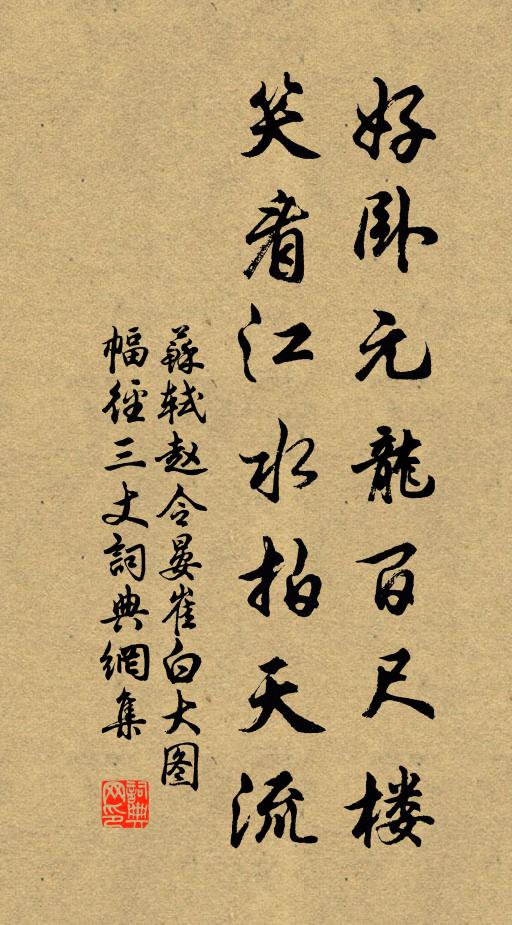 好卧元龍百尺楼
笑看江水拍天流
蘇軾赵令晏崔白大图
幅徑三丈詞典網集
詞典网印